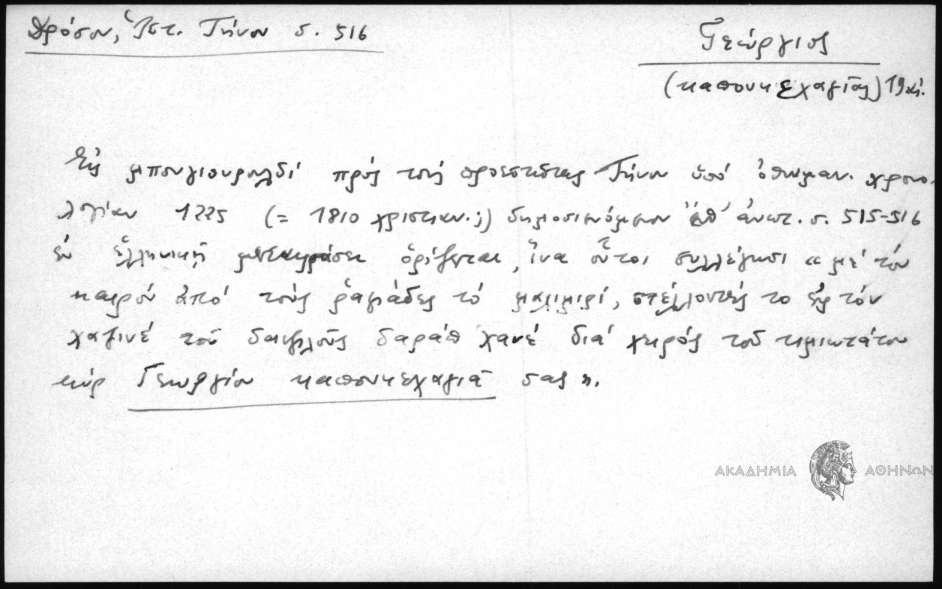 Δρόσου, Ἱστ. Τήνου σ. 516
Γεώργιος
(καπουκεχαγιᾶς) 19 αἰ.
Εἰς μπουγιουρουλδί πρός τούς προεστῶτας Τήνου ὑπό ὀθωμαν. χρονο-
λογίαν 1225 (= 1810 χριστιαν.;) δημοσιευόμενον ἐν ἀνωτ. σ. 515-516
ἐν ἑλληνικῇ μεταφράσει ὁρίζεται, ἵνα οὗτοι συλλέγωσι « μέ τόν
καιρόν ἀπό τούς ραγιάδες τό μαλιμιρί, στέλλοντές το εἰς τόν
χαζινέ τοῦ δαραπ χανέ διά χειρός τοῦ τιμιωτάτου
κύρ Γεωργίου καπουκεχαγιᾶ σας ».
ΑΚΑΔΗΜΙΑ ΑΘΗΝΩΝ